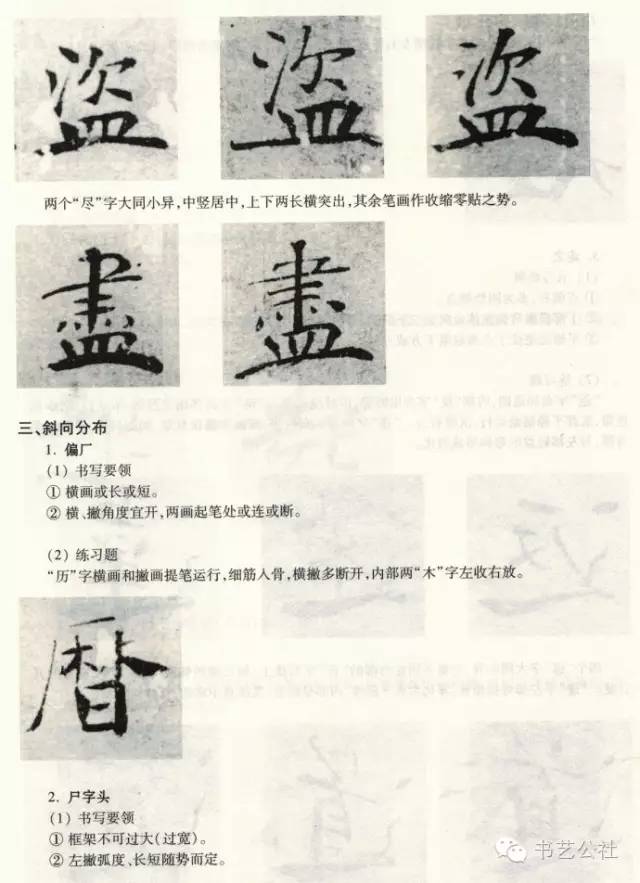 盗 盗 盗
两个“尽”字大同小异，中竖居中，上下两长横突出，其余笔画作收缩零贴之势。
盡 盡
三、斜向分布
1. 偏厂
(1) 书写要领
① 横画或长或短。
② 横、撇角度宜开，两画起笔处或连或断。
(2) 练习题
“历”字横画和撇画提笔运行，细筋入骨，横撇多断开，内部两“木”字左收右放。
暦
2. 尸字头
(1) 书写要领
① 框架不可过大(过宽)。
② 左撇弧度、长短随势而定。
书艺公社